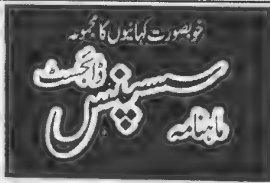 خوبصورت کہانیوں کا مجموعہ
ماہنامہ سسپنس ڈائجسٹ